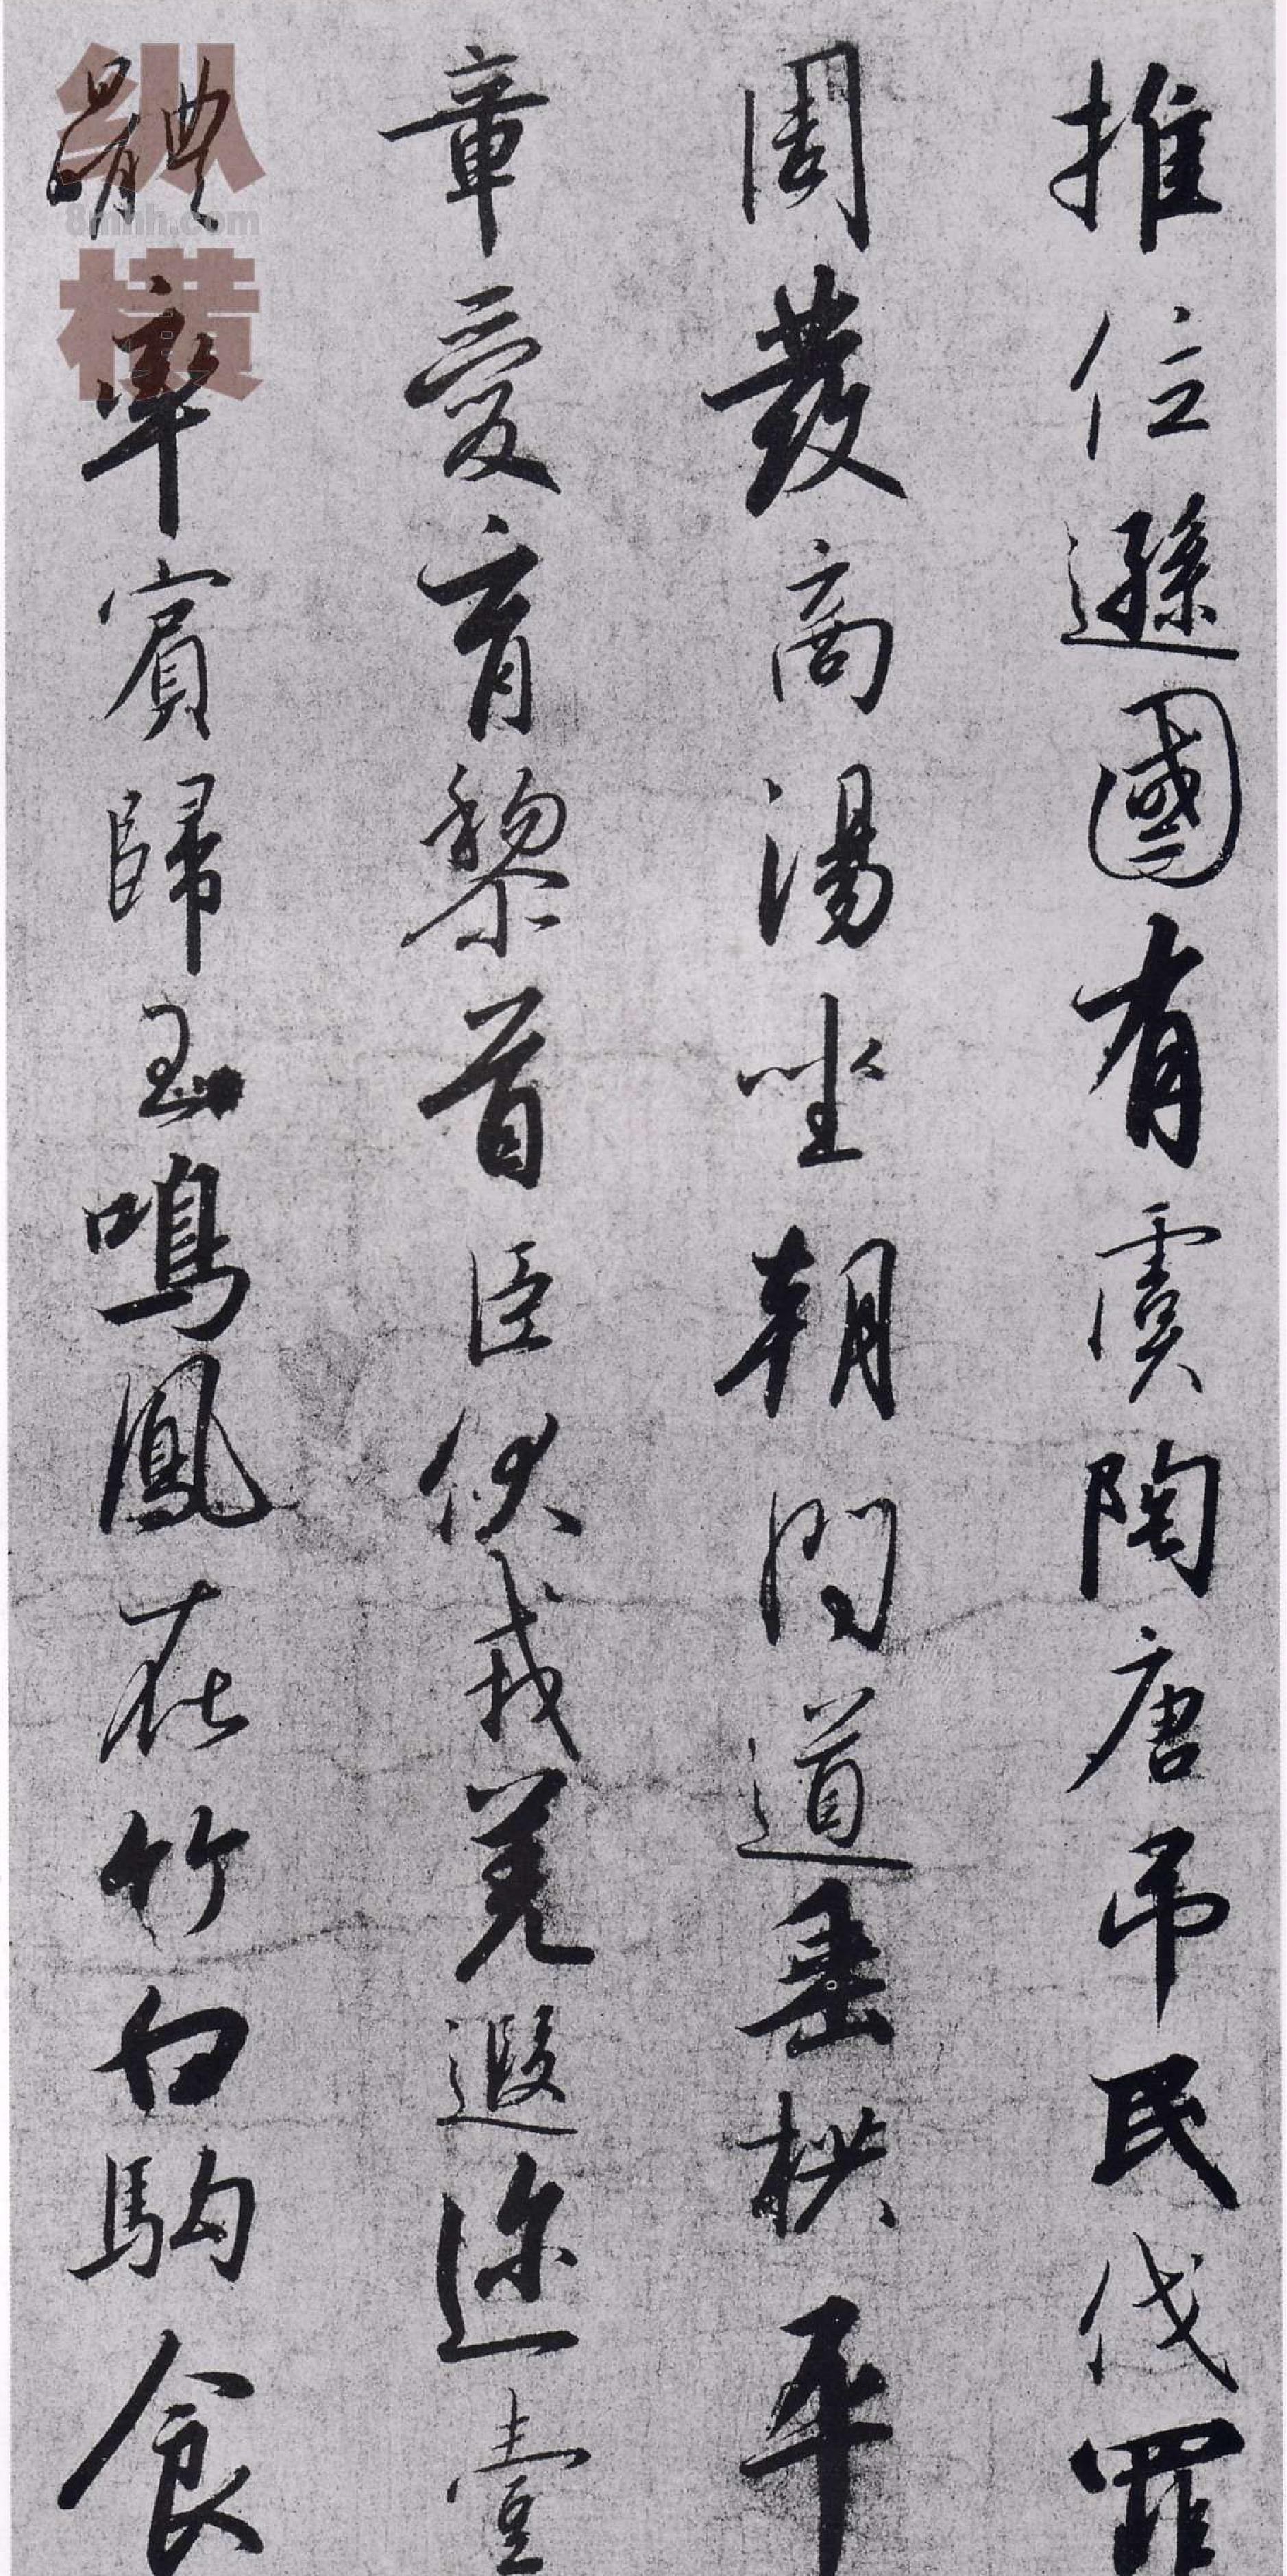 推位遜國有虞陶唐吊民伐罪
周發商湯坐朝問道垂拱平
章愛育黎首臣伏戎羌遐迩壹
體率賓歸王鳴鳳在竹白駒食
纵横